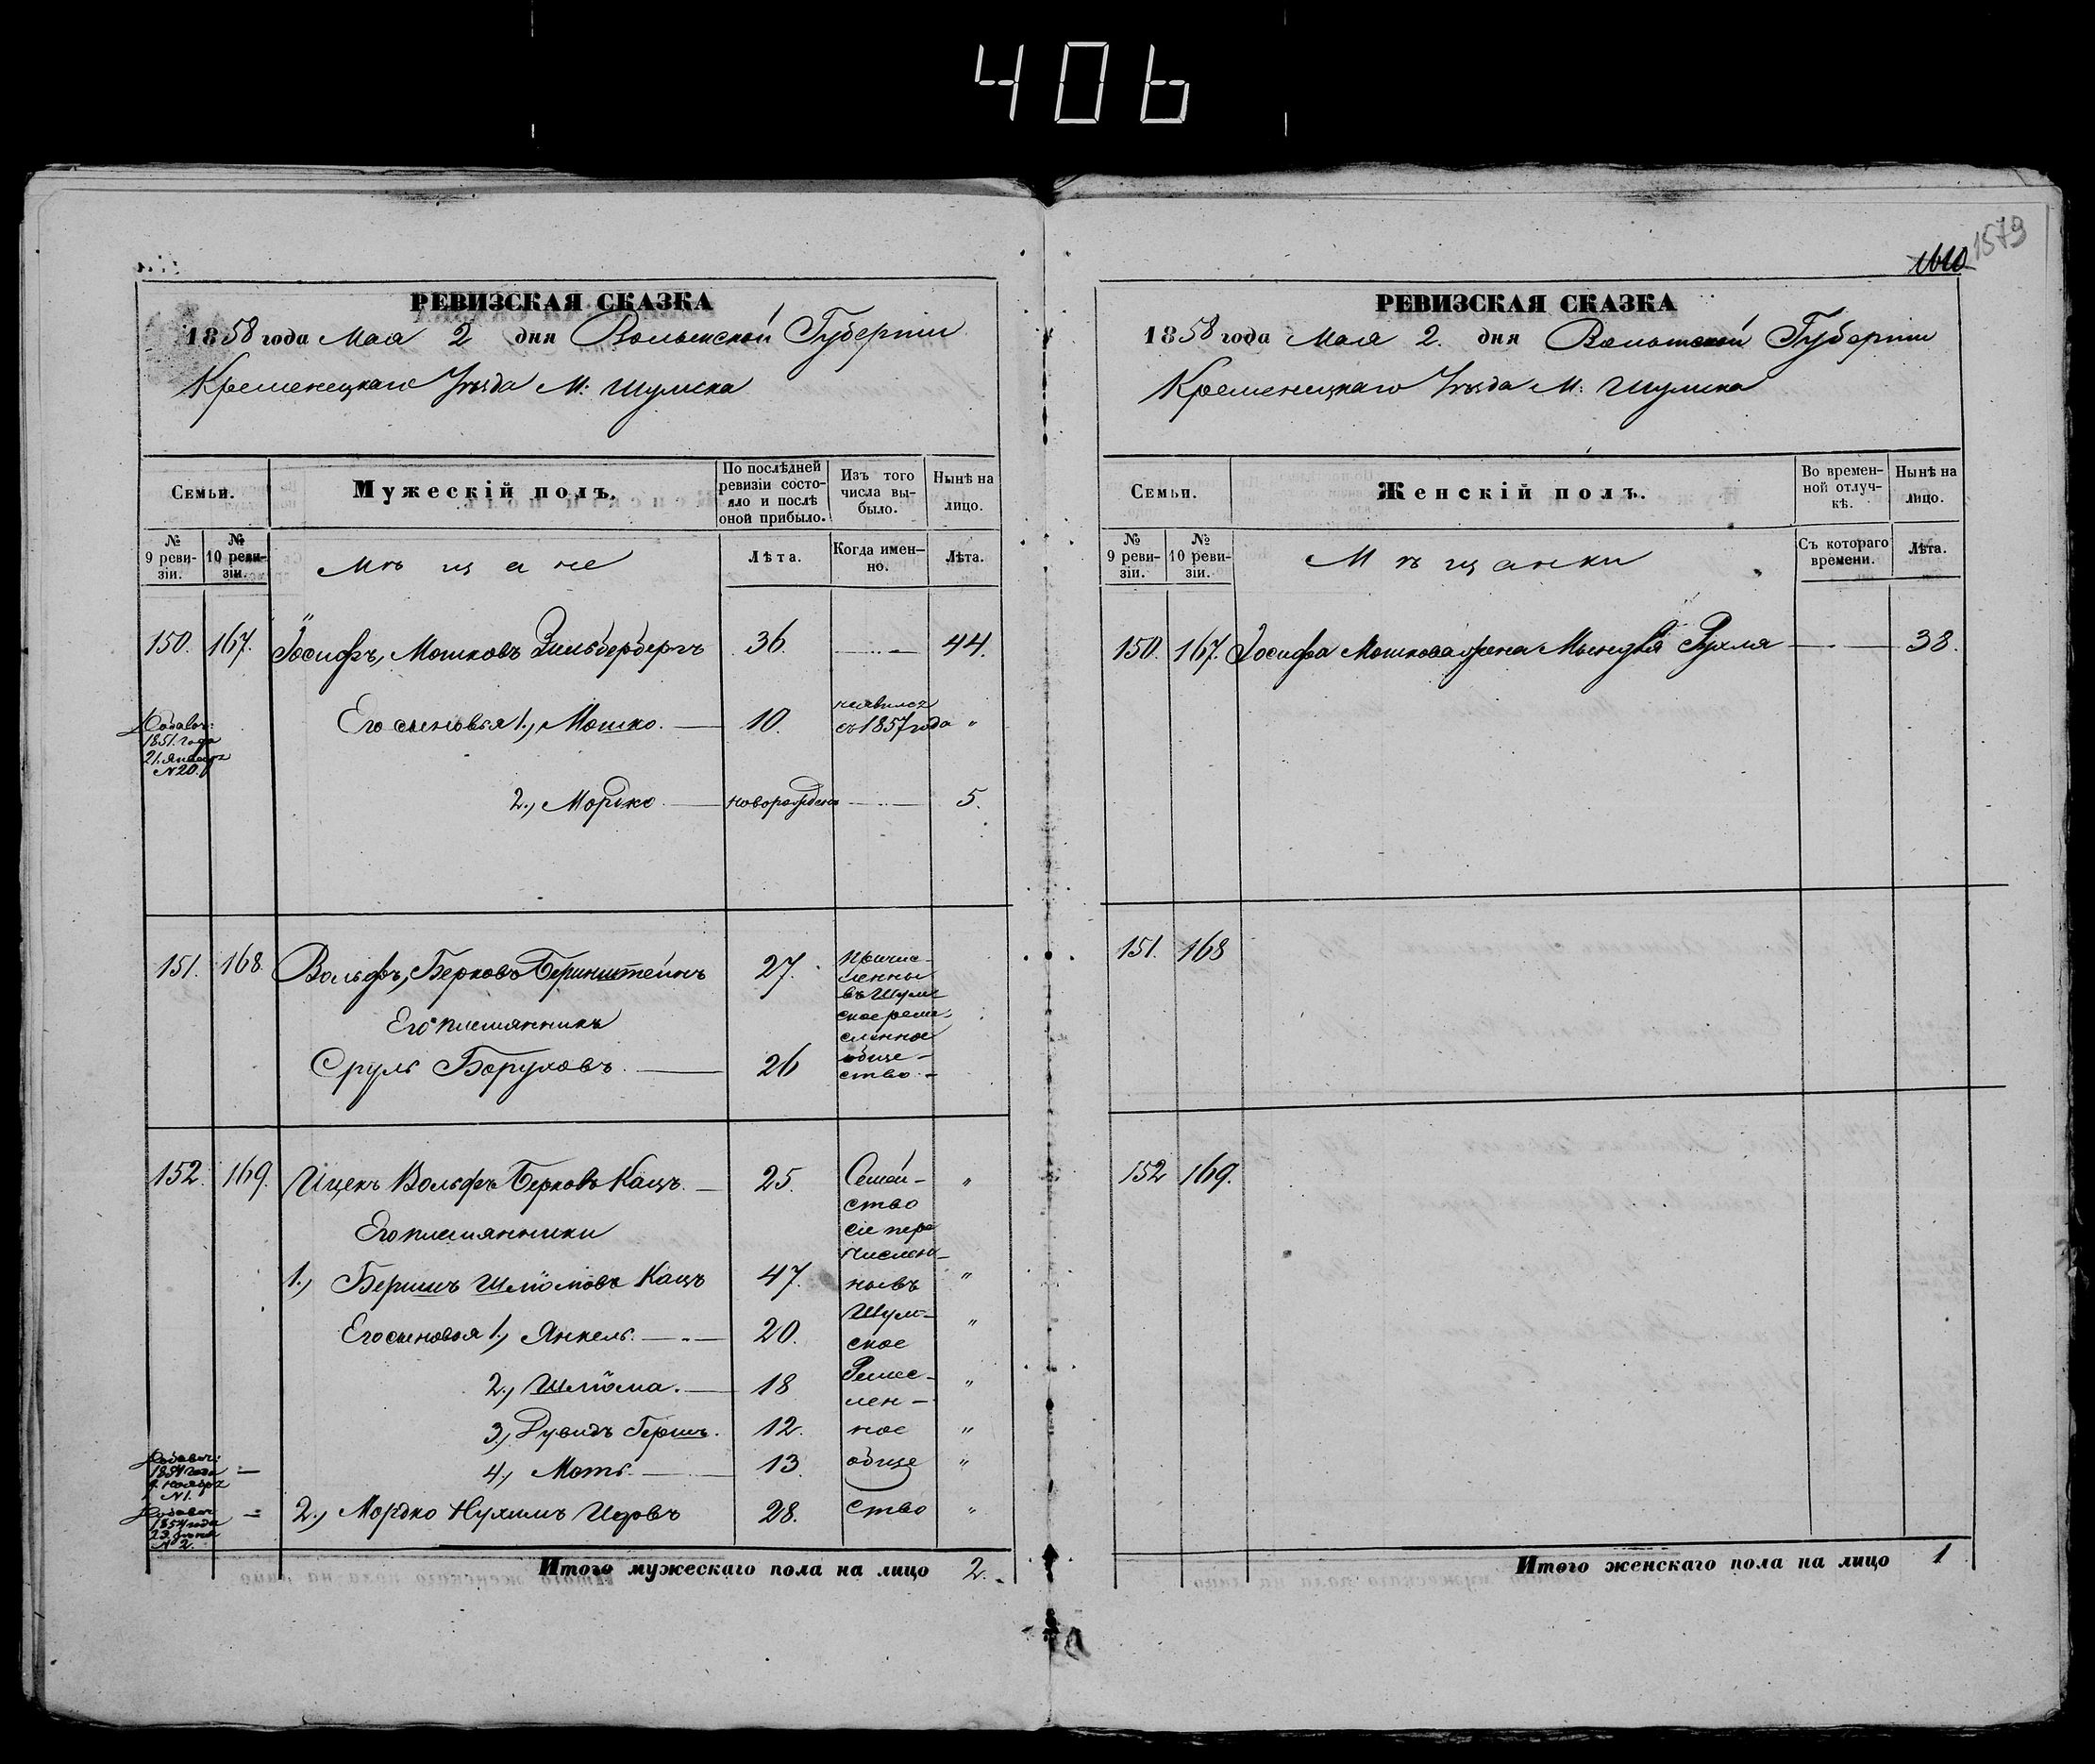 406
1579
1610
РЕВИЗСКАЯ СКАЗКА
1858 года Мая 2 дня Волынской Губерніи
Кременецкаго Уѣзда М: Шумска
Семьи.
Мужескій полъ.
По послѣдней ревизіи состояло и послѣ оной прибыло.
Изъ того числа выбыло.
Нынѣ на лицо.
№ 9 ревизіи.
№ 10 ревизіи.
Мѣщане
Лѣта.
Когда именно.
Лѣта.
150. 167. Іосифъ, Мошковъ Зильбербергъ 36. 44.
Его сыновья 1., Мошко. 10. неявился съ 1857 года "
Добавоч: 1851. года 21. Января №20.
2., Мордко новорожденъ 5.
151. 168. Вольфъ, Берковъ Беринштейнъ 27.
Его племянникъ
Сруль Боруховъ. 26
причисленны въ Шумское ремесленное общество.
152. 169. Ицекъ Вольфъ Берковъ Кацъ. 25. "
Его племянники
1., Беришъ Шліомовъ Кацъ 47. "
Его сыновья 1., Янкель. 20. "
2., Шліома. 18 "
3., Дувидъ Гершъ. 12. "
4., Мотъ. 13. "
2., Мордко Нухимъ Идовъ 28. "
Семейство сіе перечисленны въ Шумское Ремесленное общество
Добавоч: 1854 года Ноября №1.
Добавоч: 1854 года 23. №2.
Итого мужескаго пола на лицо 2.
РЕВИЗСКАЯ СКАЗКА
1858 года Мая 2. дня Волынской Губерніи
Кременецкаго Уѣзда М: Шумска
Семьи.
Женскій полъ.
Во временной отлучкѣ.
Нынѣ на лицо.
№ 9 ревизіи.
№ 10 ревизіи.
Мѣщанки
Съ котораго времени.
Лѣта.
150. 167. Іосифа Мошкова жена Мындля Рухля 38.
151. 168
152 169.
Итого женскаго пола на лицо 1